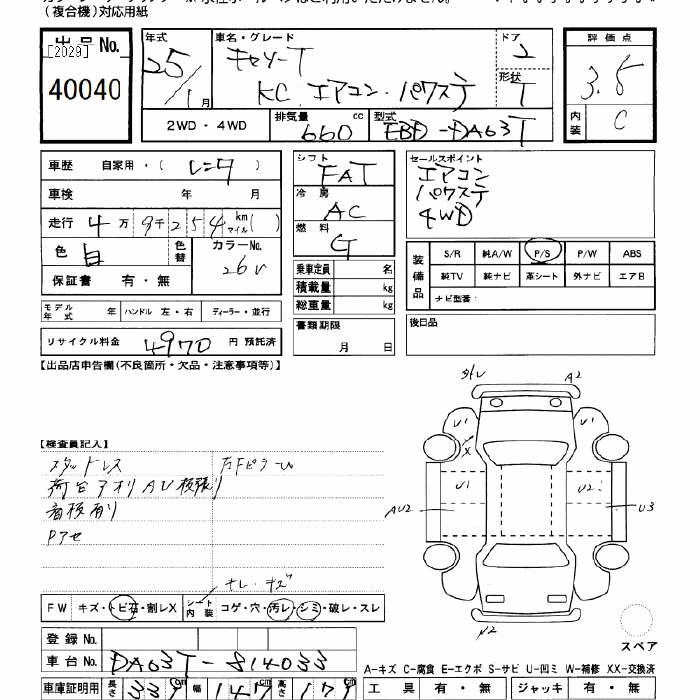 (複合機)対応用紙
出品No.
[2029]
40040
年式 25/1月
車名・グレード キャリーT
KC エアコン・パワステ
ドア 2
形状 T
評価点 3.5
内装 C
2WD・4WD
排気量 660 cc
型式 EBD-DA63T
車歴 自家用・( レンタ )
車検 年 月
走行 4万9千254 km マイル( )
色 白 色替
カラーNo. 26U
保証書 有・無
モデル年式 年 ハンドル 左・右 ディーラー・並行
リサイクル料金 4970 円 預託済
シフト FAT
冷房 AC
燃料 G
乗車定員 名
積載量 kg
総重量 kg
書類期限
月 日
セールスポイント
エアコン
パワステ
4WD
装備品
S/R 純A/W P/S P/W ABS
純TV 純ナビ 革シート 外ナビ エアB
ナビ型番:
後日品
【出品店申告欄(不良箇所・欠品・注意事項等)】
【検査員記入】
スタッドレス
荷台アオリ AU 板張り
看板有り
Pアセ
FW キズ・トビ石・割レX
シート内装 コゲ・穴・汚レ・シミ・破レ・スレ
登録No.
車台No. DA63T-814033
車庫証明用 長さ 339cm 幅 147cm 高さ
A2
U1
U1
X
U1
U2
AU2
U3
A2
スペア
A-キズ C-腐食 E-エクボ S-サビ U-凹ミ W-補修 XX-交換済
工具 有・無 ジャッキ 有・無